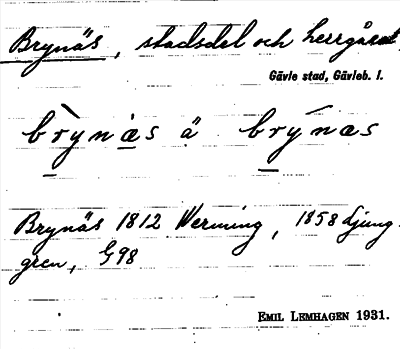 Brynäs, stadsdel och herrgård
Gävle stad, Gävleb. l.
brynäs ä brynäs
Brynäs 1812 Werming, 1858 Ljung-
gren, G98
EMIL LEMHAGEN 1931.